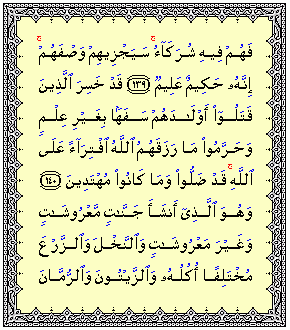 فَهُمْ فِيهِ شُرَكَآءُ ۚ سَيَجْزِيهِمْ وَصْفَهُمْ ۚ
إِنَّهُۥ حَكِيمٌ عَلِيمٌ ﴿١٣٩﴾ قَدْ خَسِرَ ٱلَّذِينَ
قَتَلُوٓا۟ أَوْلَـٰدَهُمْ سَفَهًۢا بِغَيْرِ عِلْمٍ
وَحَرَّمُوا۟ مَا رَزَقَهُمُ ٱللَّهُ ٱفْتِرَآءً عَلَى
ٱللَّهِ ۚ قَدْ ضَلُّوا۟ وَمَا كَانُوا۟ مُهْتَدِينَ ﴿١٤٠﴾
وَهُوَ ٱلَّذِىٓ أَنشَأَ جَنَّـٰتٍ مَّعْرُوشَـٰتٍ
وَغَيْرَ مَعْرُوشَـٰتٍ وَٱلنَّخْلَ وَٱلزَّرْعَ
مُخْتَلِفًا أُكُلُهُۥ وَٱلزَّيْتُونَ وَٱلرُّمَّانَ